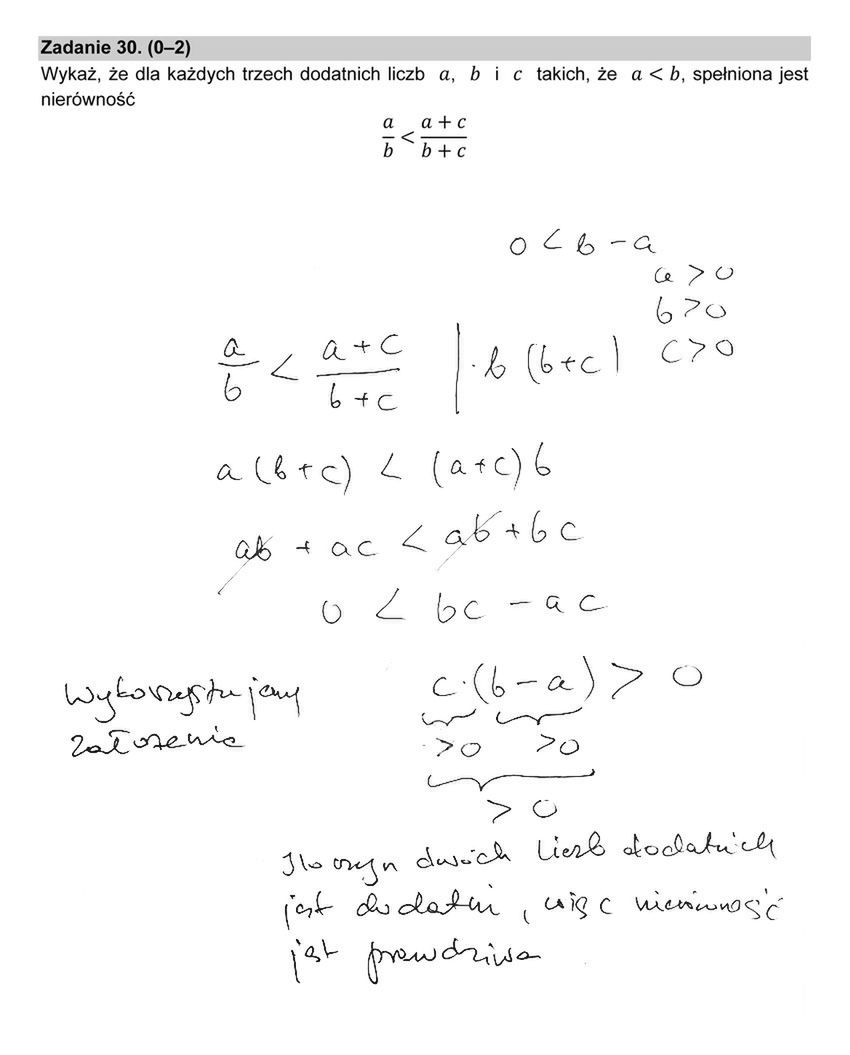 Zadanie 30. (0–2)
Wykaż, że dla każdych trzech dodatnich liczb a, b i c takich, że a < b, spełniona jest
nierówność
a/b < (a + c)/(b + c)
0 < b - a
a > 0
b > 0
c > 0
a/b < (a + c)/(b + c) | · b (b + c)
a (b + c) < (a + c) b
ab + ac < ab + bc
0 < bc - ac
Wykorzystujemy
założenie
c · (b - a) > 0
> 0 > 0
> 0
Iloczyn dwóch liczb dodatnich
jest dodatni, więc nierówność
jest prawdziwa